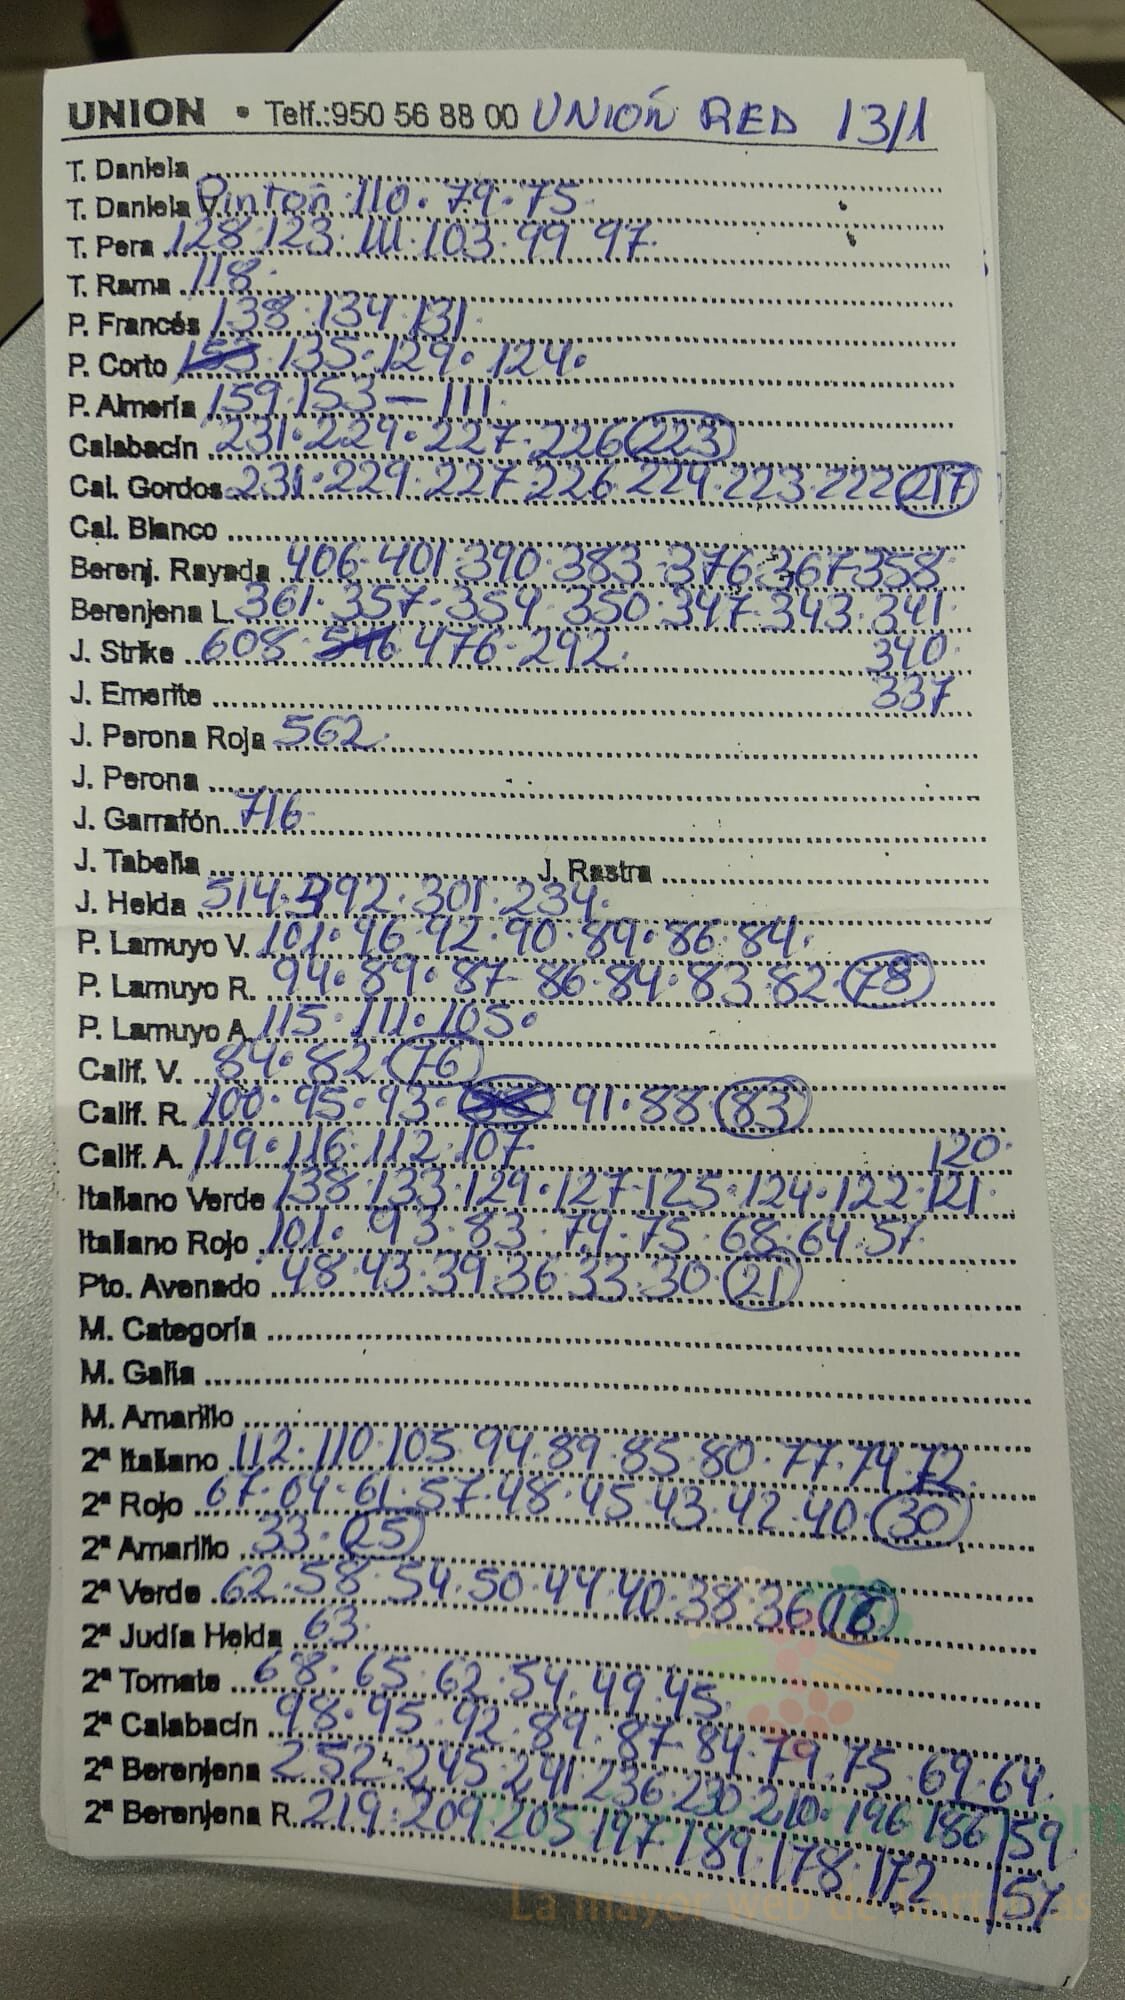 UNION • Telf.:950 56 88 00 UNIOÑ RED 13/1
T. Daniela
T. Daniela Pintoñ 110. 79. 75
T. Pera 128. 123. 111. 103. 99 97.
T. Rama 118.
P. Francés 138. 134. 131.
P. Corto 153. 135. 129. 124.
P. Almería 159. 153 — 111.
Calabacín 231. 229. 227. 226 223
Cal. Gordos 231. 229. 227. 226. 224. 223. 222 217
Cal. Blanco
Berenj. Rayada 406. 401. 390. 383. 376. 367. 358.
Berenjena L. 361. 357. 354. 350. 347. 343. 341.
J. Strike 608. 546 476. 292. 340.
J. Emerite 337
J. Perona Roja 562.
J. Perona
J. Garrafón 716.
J. Tabella J. Rastra
J. Helda 514. 392. 301. 234.
P. Lamuyo V. 101. 96. 92. 90. 89. 86. 84.
P. Lamuyo R. 94. 89. 87. 86. 84. 83. 82. 78
P. Lamuyo A. 115. 111. 105.
Calif. V. 84. 82. 76
Calif. R. 100. 95. 93. 91. 88. 83
Calif. A. 119. 116. 112. 107. 120.
Italiano Verde 138. 133. 129. 127. 125. 124. 122. 121.
Italiano Rojo 101. 93. 83. 79. 75. 68. 64. 57.
Pto. Avenado 48. 43. 39. 36. 33. 30. 21
M. Categoría
M. Galia
M. Amarillo
2ª Italiano 112. 110. 105. 94. 89. 85. 80. 77. 74. 72.
2ª Rojo 67. 64. 61. 57. 48. 45. 43. 42. 40. 30
2ª Amarillo 33. 25
2ª Verde 62. 58. 54. 50. 44. 40. 38. 36 18
2ª Judía Helda 63.
2ª Tomate 68. 65. 62. 54. 49. 45.
2ª Calabacín 98. 95. 92. 89. 87. 84. 79. 75. 69. 64.
2ª Berenjena 252. 245. 241. 236. 230. 210. 196. 186 59.
2ª Berenjena R. 219. 209. 205. 197. 189. 178. 172 57
La mayor web de hortalizas